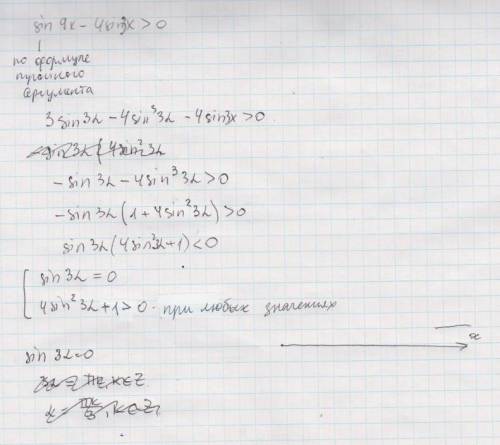 sin 9x - 4sin3x > 0
по формуле
тройного
аргумента
3sin3α - 4sin³3α - 4sin3x > 0
-sin3α(4sin²3α
-sin3α - 4sin³3α > 0
-sin3α(1 + 4sin²3α) > 0
sin3α(4sin²3α + 1) < 0
sin3α = 0
4sin²3α + 1 > 0 - при любых значениях
x
sin3α = 0
3α = πk, k∈Z
α = πk/3, k∈Z